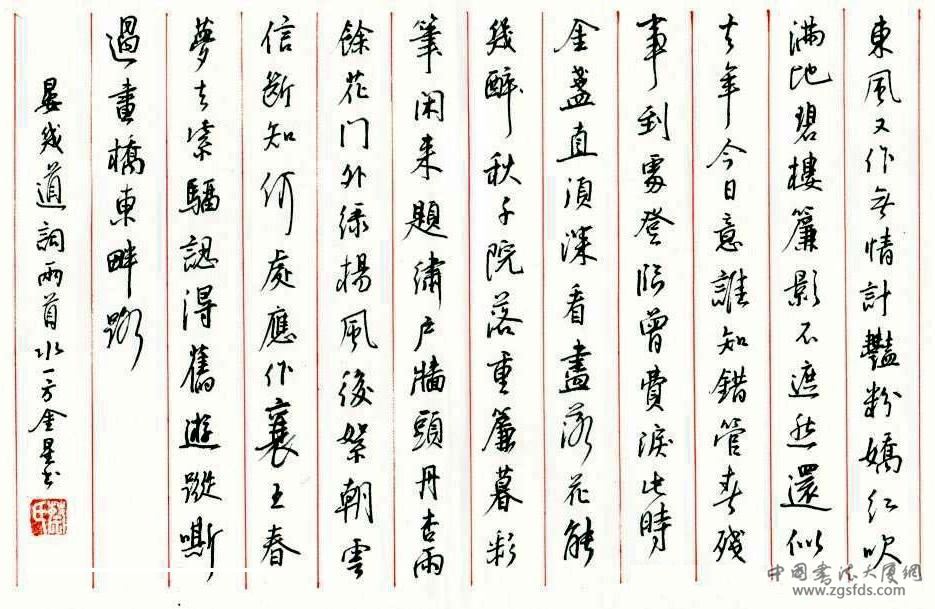 東風又作無情計豔粉嬌紅吹
滿地碧樓簾影不遮愁還似
去年今日意誰知錯管春殘
事到處登臨曾費淚此時
金盞直須深看盡落花能
幾醉 秋千院落重簾暮彩
筆闲来題繡戶牆頭丹杏雨
餘花门外綠楊風後絮朝雲
信斷知何處應作襄王春
夢去紫騮認得舊遊蹤嘶
過畫橋東畔路
晏幾道詞兩首水一方金星书
中國書法大廈網
www.zgsfds.com